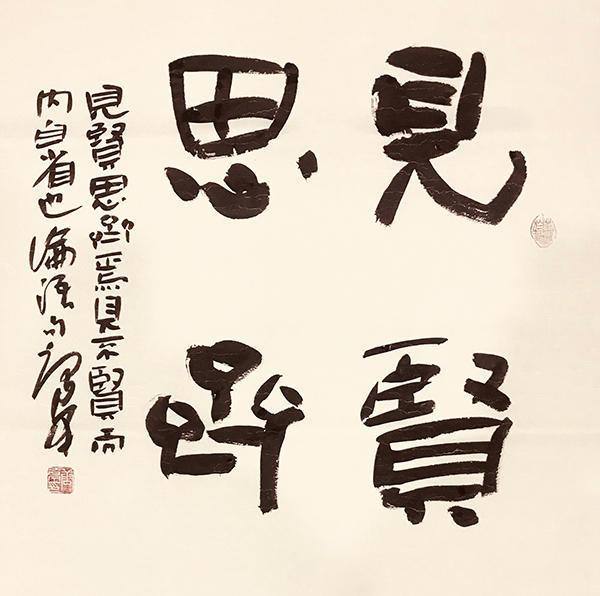 見賢
思齊
見賢思齊焉見不賢而
內自省也論語句